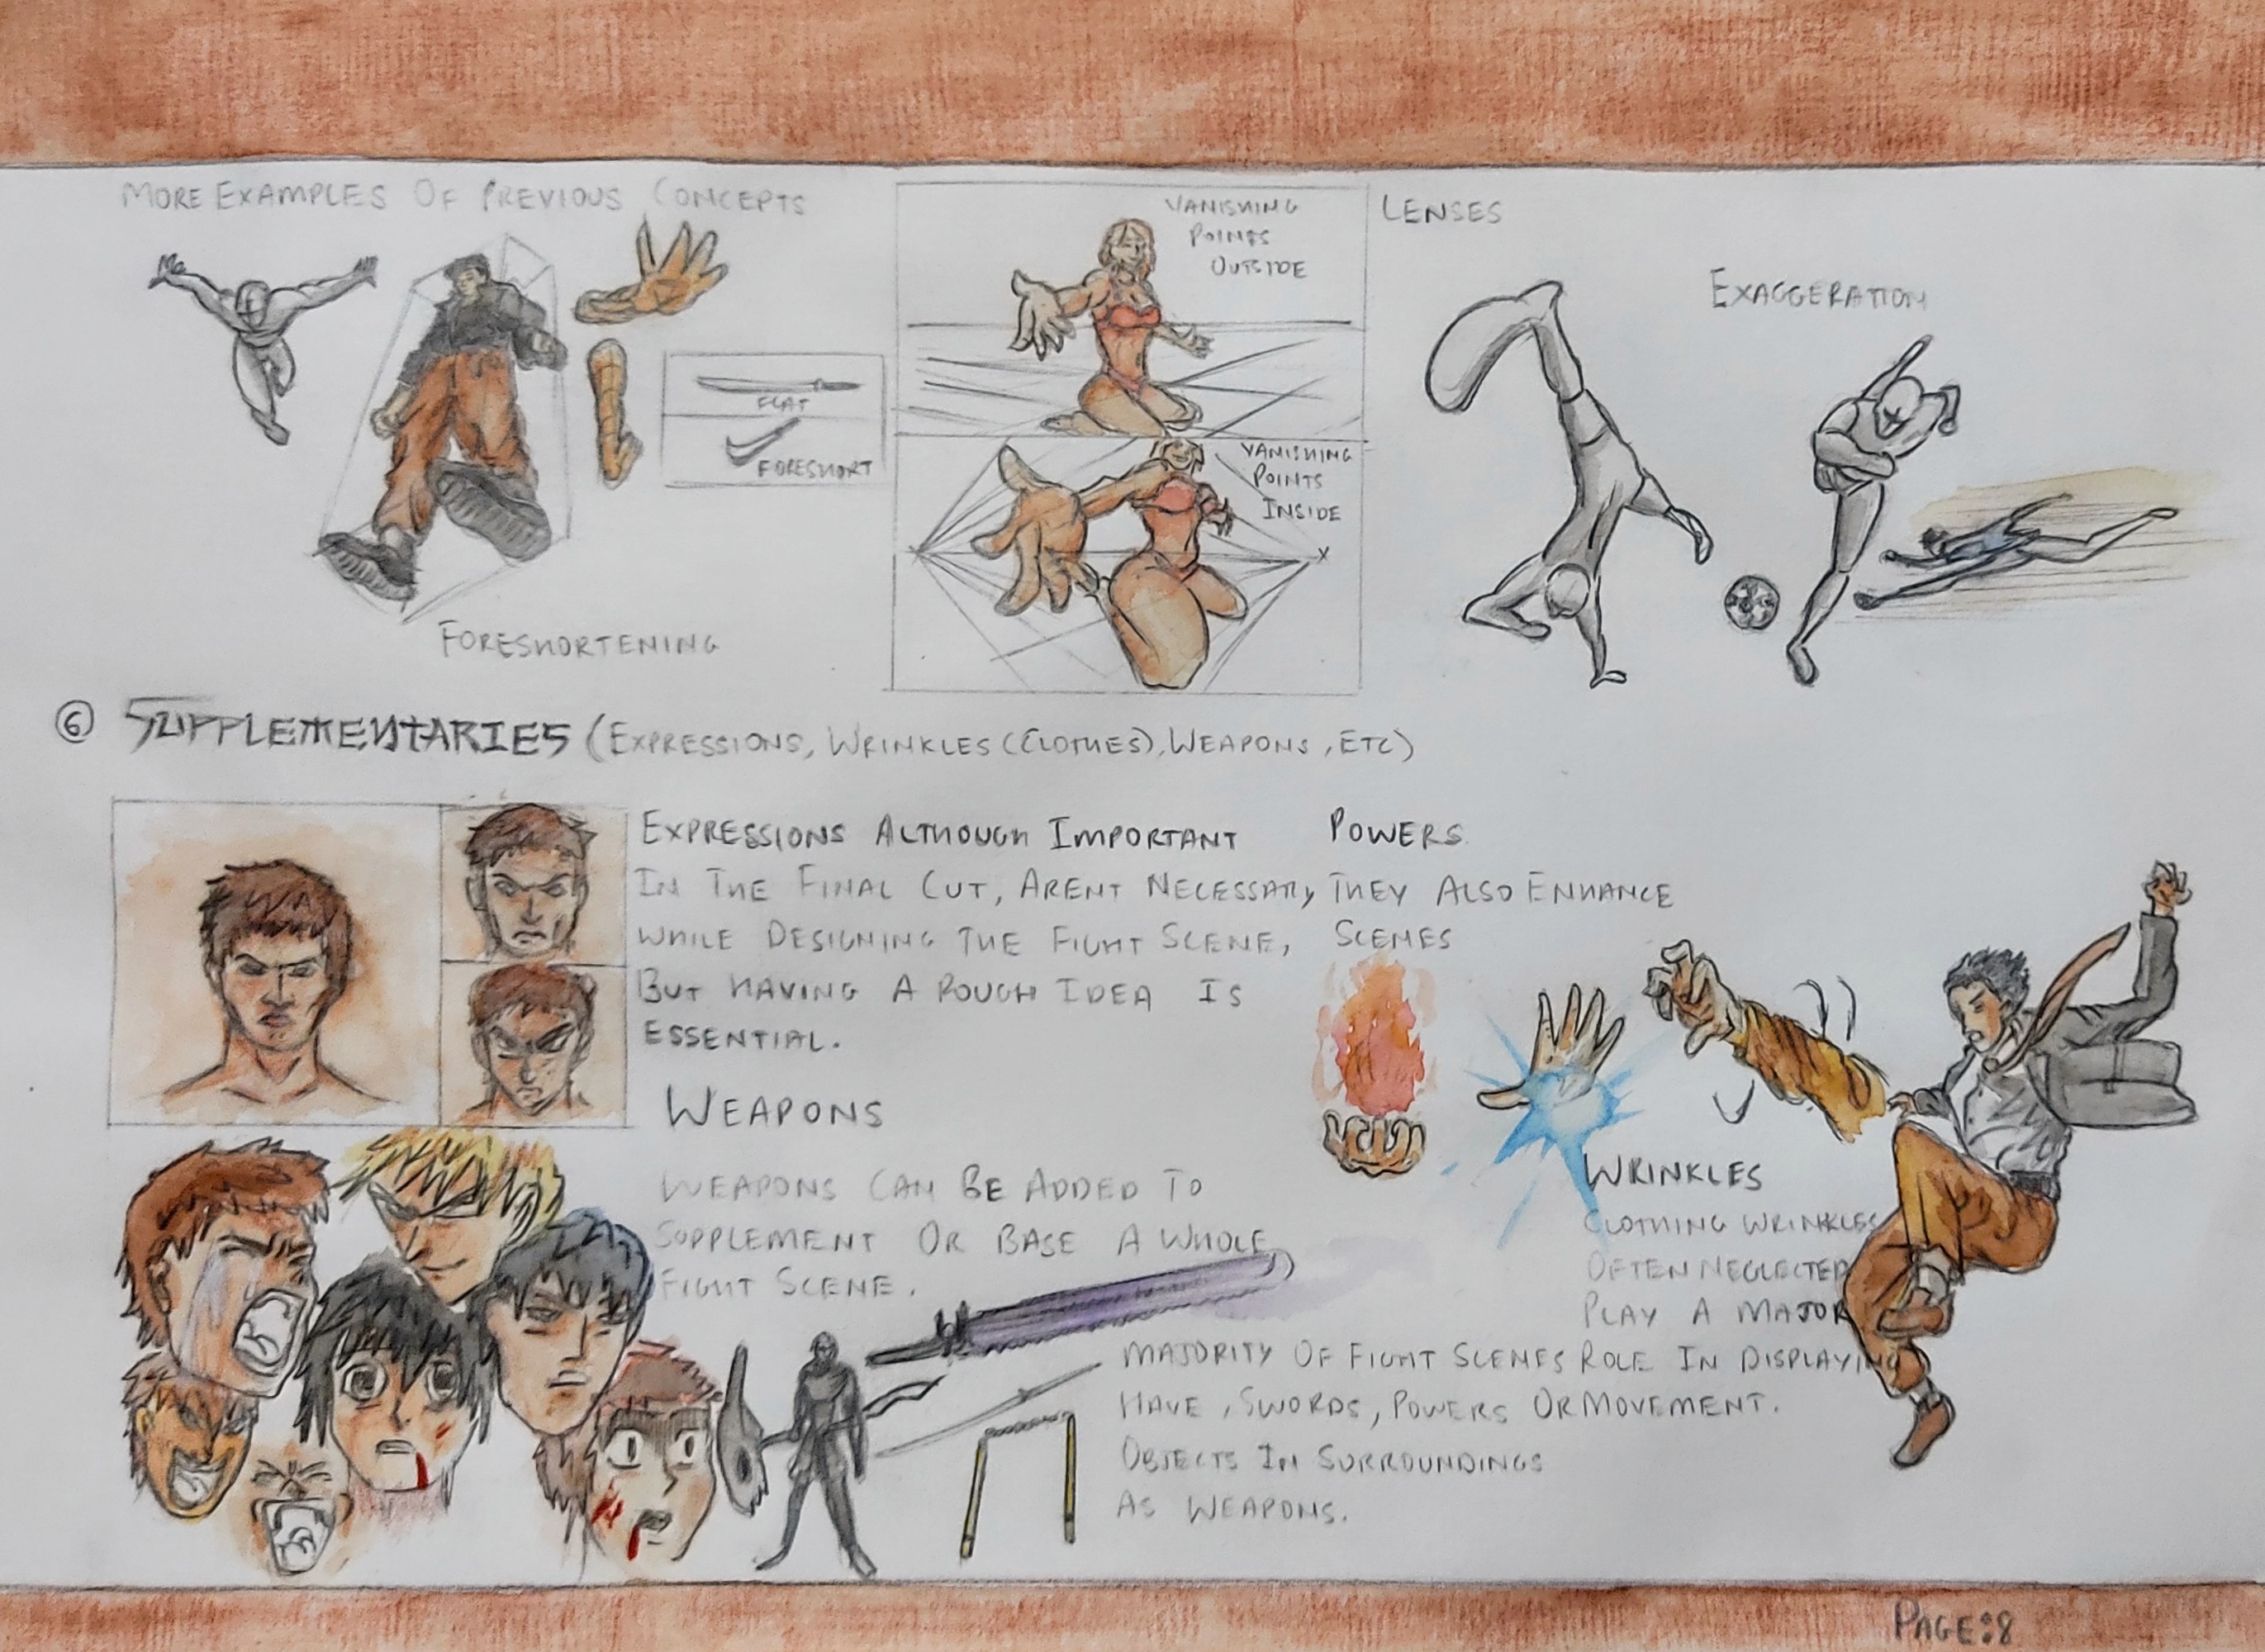 MORE EXAMPLES OF PREVIOUS CONCEPTS
FLAT
FORESHORT
FORESHORTENING
VANISHING
POINTS
OUTSIDE
VANISHING
POINTS
INSIDE
X
LENSES
EXAGGERATION
6 SUPPLEMENTARIES (EXPRESSIONS, WRINKLES (CLOTHES), WEAPONS, ETC)
EXPRESSIONS ALTHOUGH IMPORTANT
IN THE FINAL CUT, ARENT NECESSARY
WHILE DESIGNING THE FIGHT SCENE,
BUT HAVING A ROUGH IDEA IS
ESSENTIAL.
POWERS
THEY ALSO ENHANCE
SCENES
WEAPONS
WEAPONS CAN BE ADDED TO
SUPPLEMENT OR BASE A WHOLE
FIGHT SCENE.
MAJORITY OF FIGHT SCENES
HAVE, SWORDS, POWERS OR
OBJECTS IN SURROUNDINGS
AS WEAPONS.
WRINKLES
CLOTHING WRINKLES
OFTEN NEGLECTED
PLAY A MAJOR
ROLE IN DISPLAYING
MOVEMENT.
PAGE:8